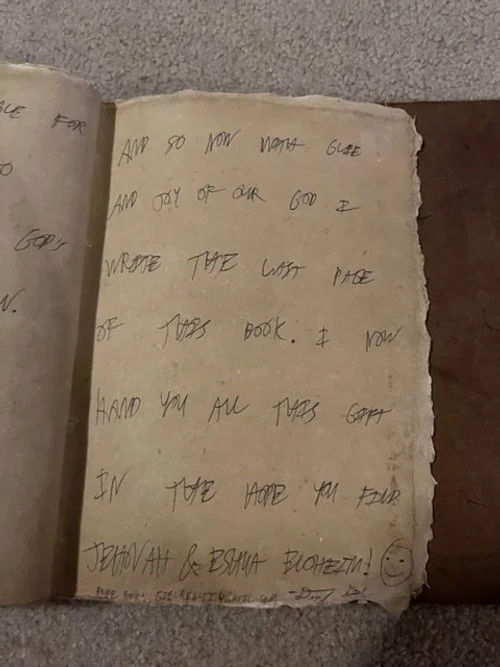 BLE FOR
GOD'S
AND SO NOW WITH GLEE
AND JOY OF OUR GOD I
WRITE THE LAST PAGE
OF THIS BOOK. I NOW
HAND YOU ALL THIS GIFT
IN THE HOPE YOU FIND
JEHOVAH & ESHUA ELOHEIM!